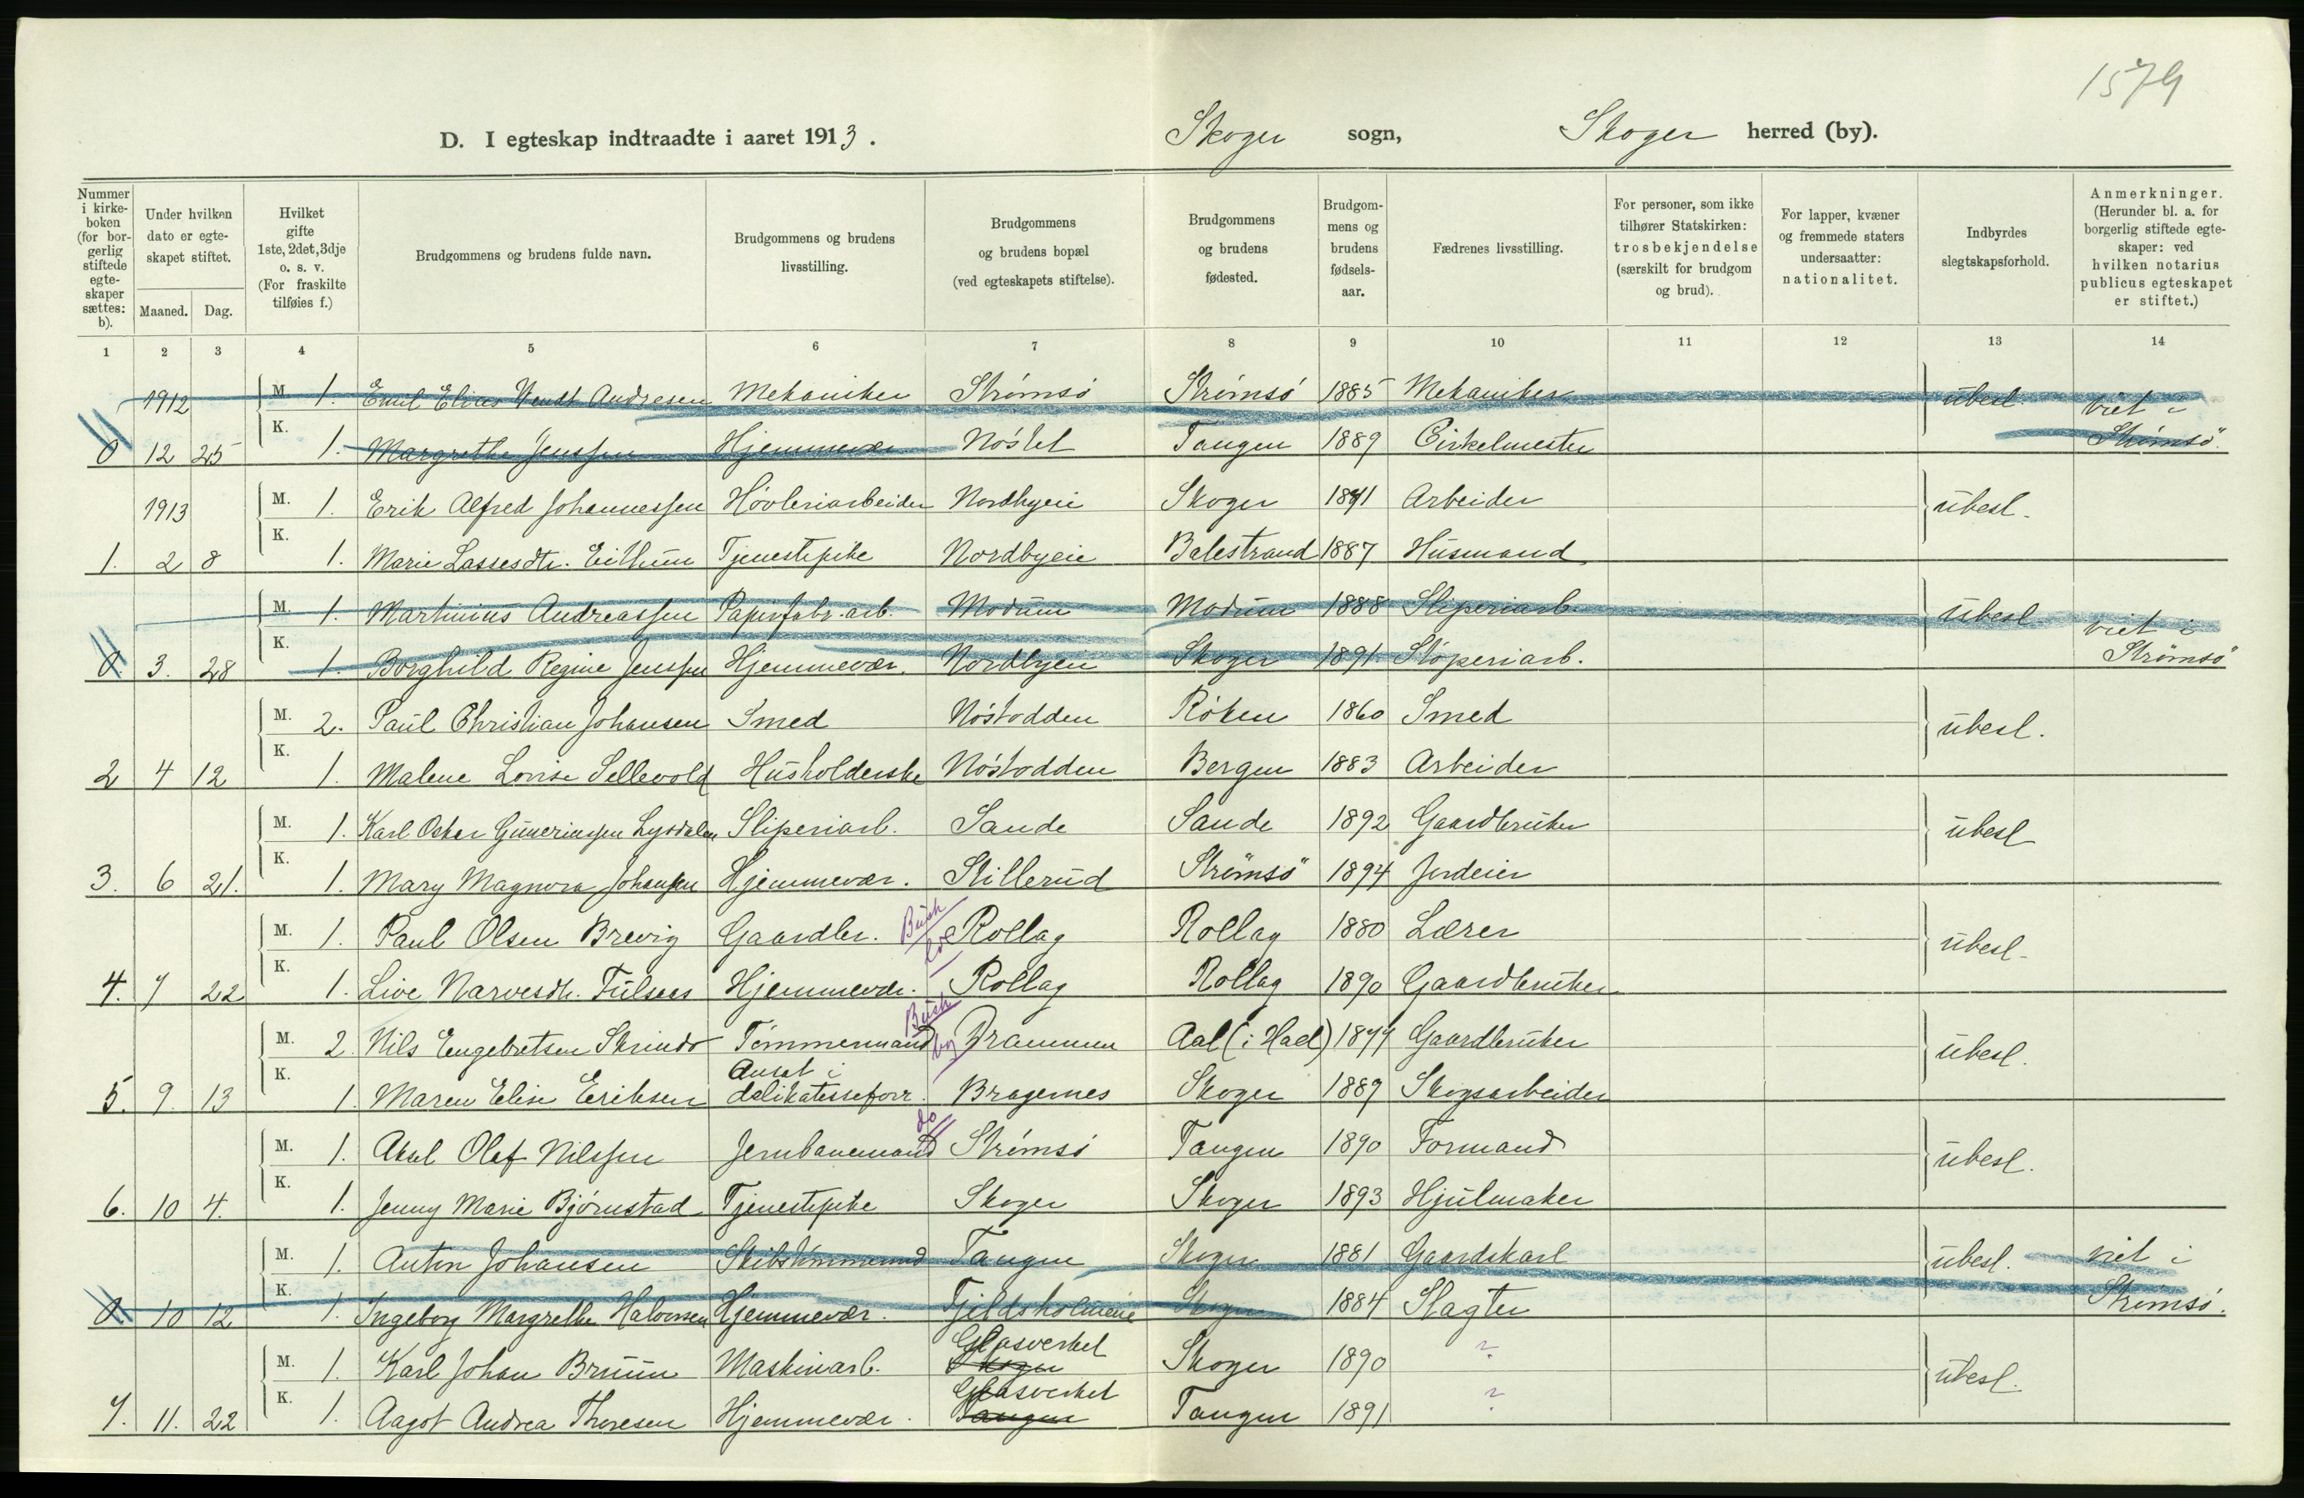 1579
D. I egteskap indtraadte i aaret 1913. Skoger sogn, Skoger herred (by).
Nummer i kirkeboken (for borgerlig stiftede egteskaper sættes: b).
Under hvilken dato er egteskapet stiftet.
Maaned. Dag.
Hvilket gifte 1ste, 2det, 3dje o. s. v. (For fraskilte tilføies f.)
Brudgommens og brudens fulde navn.
Brudgommens og brudens livsstilling.
Brudgommens og brudens bopæl (ved egteskapets stiftelse).
Brudgommens og brudens fødested.
Brudgommens og brudens fødselsaar.
Fædrenes livsstilling.
For personer, som ikke tilhører Statskirken: trosbekjendelse (særskilt for brudgom og brud).
For lapper, kvæner og fremmede staters undersaatter: nationalitet.
Indbyrdes slegtskapsforhold.
Anmerkninger. (Herunder bl. a. for borgerlig stiftede egteskaper: ved hvilken notarius publicus egteskapet er stiftet.)
1 2 3 4 5 6 7 8 9 10 11 12 13 14
1912 M. 1. Emil Elias Wendt Andresen Mekaniker Strømsø Strømsø 1885 Mekaniker ubesl. viet i
0 12 25 K. 1. Margrethe Jenssen Hjemmevær Nøstet Tangen 1889 Cirkelmester Strømsø.
1913 M. 1. Erik Alfred Johannessen Høvleriarbeider Nordbyeie Skoger 1891 Arbeider ubesl.
1. 2 8 K. 1. Marie Lassesdtr. Eithun Tjenestepike Nordbyeie Balestrand 1887 Husmand
M. 1. Martinius Andreassen Papirfabr.arb. Modum Modum 1888 Sliperiarb. ubesl. viet i
0 3. 28 K. 1. Borghild Regine Jenssen Hjemmevær. Nordbyeie Skoger 1891 Støperiarb. Strømsø
M. 2. Paul Christian Johansen Smed Nøstodden Røken 1860 Smed ubesl.
2 4 12 K. 1. Malene Lovise Sellevold Husholderske Nøstodden Bergen 1883 Arbeider
M. 1. Karl Oskar Guneriussen Lysdalen Sliperiarb. Sande Sande 1892 Gaardbruker ubesl
3. 6 21. K. 1. Mary Magnora Johansen Hjemmevær. Skillerud Strømsø 1894 Jordeier
M. 1. Paul Olsen Brevig Gaardbr. Busk Rollag Rollag 1880 Lærer ubesl.
4. 7 22 K. 1. Live Narvesdtr. Fulsaas Hjemmevær. Rollag Rollag 1890 Gaardbruker
M. 2. Nils Engebretsen Skrindo Tømmermand Busk Drammen Aal (i Hall) 1877 Gaardbruker ubesl.
5. 9. 13 K. 1. Maren Elise Eriksen Ansat i delikatesseforr. Bragernes Skoger 1889 Skogsarbeider
M. 1. Aksel Olaf Nilssen Jernbanemand do Strømsø Tangen 1890 Formand ubesl.
6. 10 4. K. 1. Jenny Marie Bjørnstad Tjenestepike Skoger Skoger 1893 Hjulmaker
M. 1. Anton Johansen Skibstømmermand Tangen Skoger 1881 Gaardskarl ubesl. viet i
0 10 12 K. 1. Ingeborg Margrethe Halvorsen Hjemmevær. Fjeldsholmene Skoger 1884 Slagter Strømsø.
M. 1. Karl Johan Bruun Maskinarb. Glasverket Skoger Skoger 1890 ? ubesl.
7. 11. 22 K. 1. Aagot Andrea Thoresen Hjemmevær. Glasverket Tangen Tangen 1891 ?